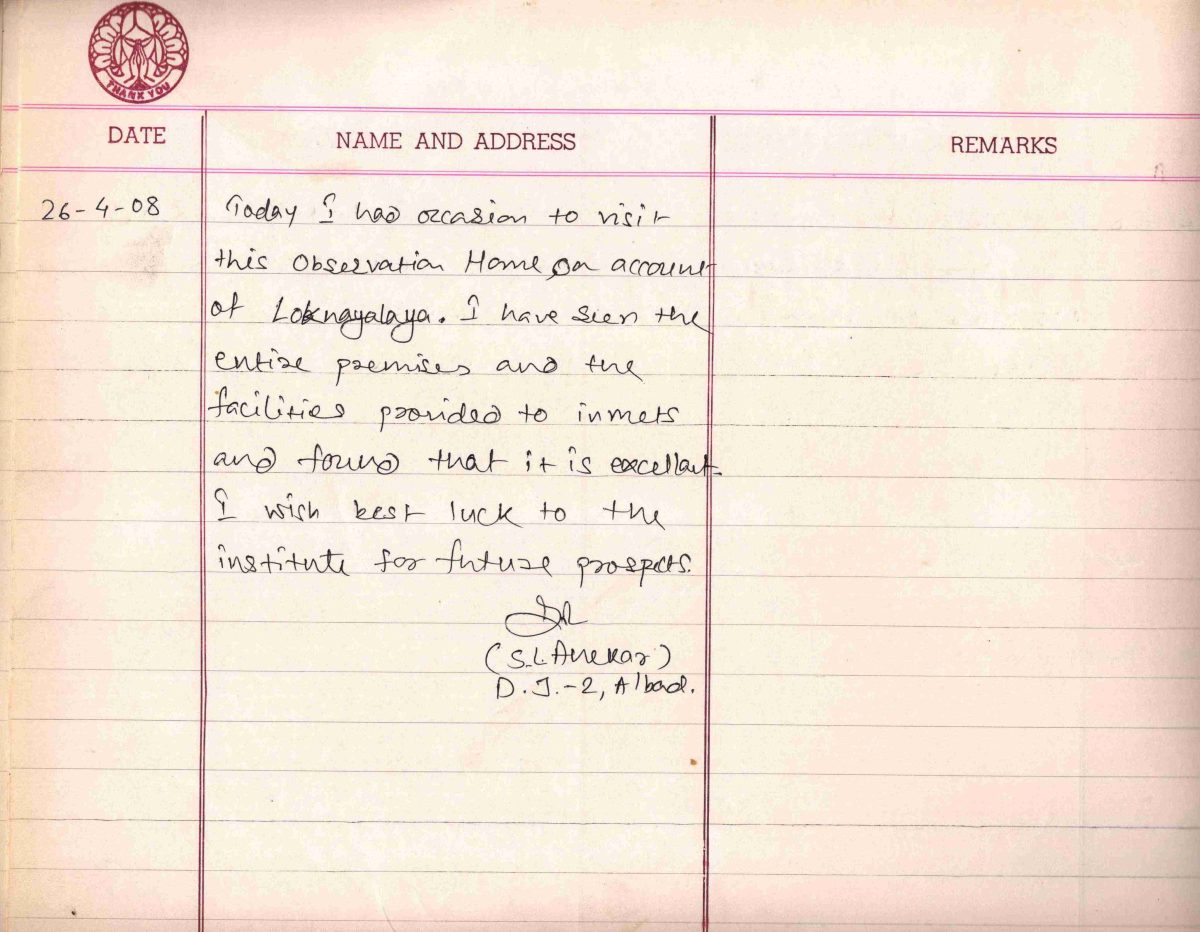 THANK YOU
DATE
NAME AND ADDRESS
REMARKS
26-4-08
Today I had occasion to visit
this Observation Home, on account
of Loknayalaya. I have seen the
entire premises and the
facilities provided to inmets
and found that it is excellant.
I wish best luck to the
institute for future prospects.
(S.L. Anekar)
D.J.-2, A'bad.